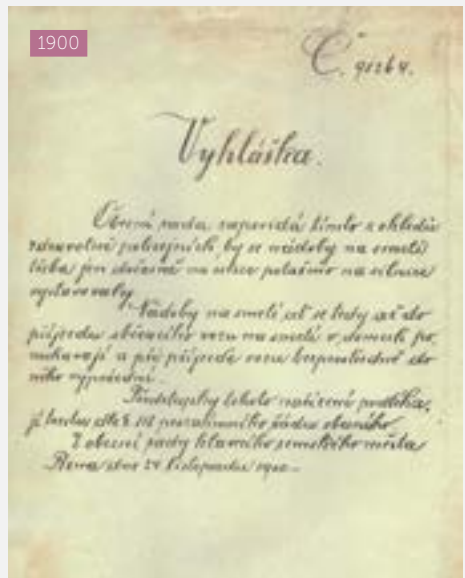 1900
Č. 91264.
Vyhláška.
Obecní rada zapovídá tímto z ohledů
zdravotně policejních, by se nádoby na smetí
třeba jen dočasně na ulice potažmo na silnice
vystavovaly.
Nádoby na smetí ať se tedy až do
příjezdu sběracího vozu na smetí v domech po-
nechávají a při příjezdu vozu bezprostředně do
něho vyprázdní.
Přestupky tohoto nařízení
trestu dle § obecního
Z obecní rady hlavního zemského města
Brna dne 24 listopadu 1900.